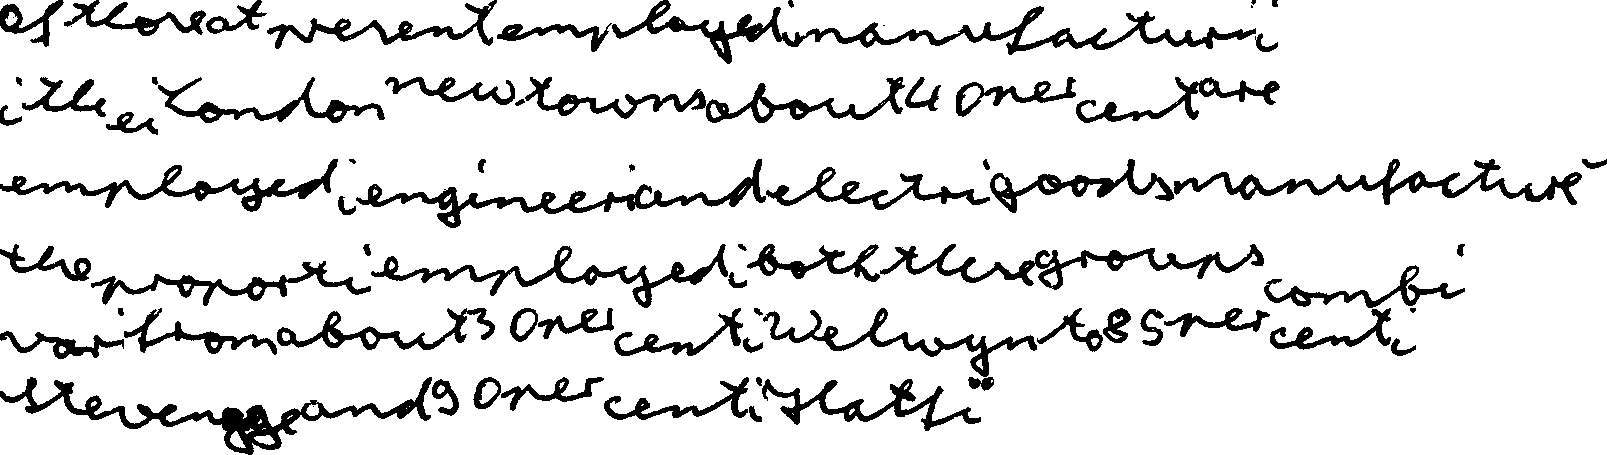 Of those at present employed in manufacturing
in the eight London new towns about 40 per cent are
employed in engineering and electrical goods manufacture
the proportion employed in both these groups combined
varies from about 30 per cent in Welwyn to 85 per cent in
Stevenage and 90 per cent in